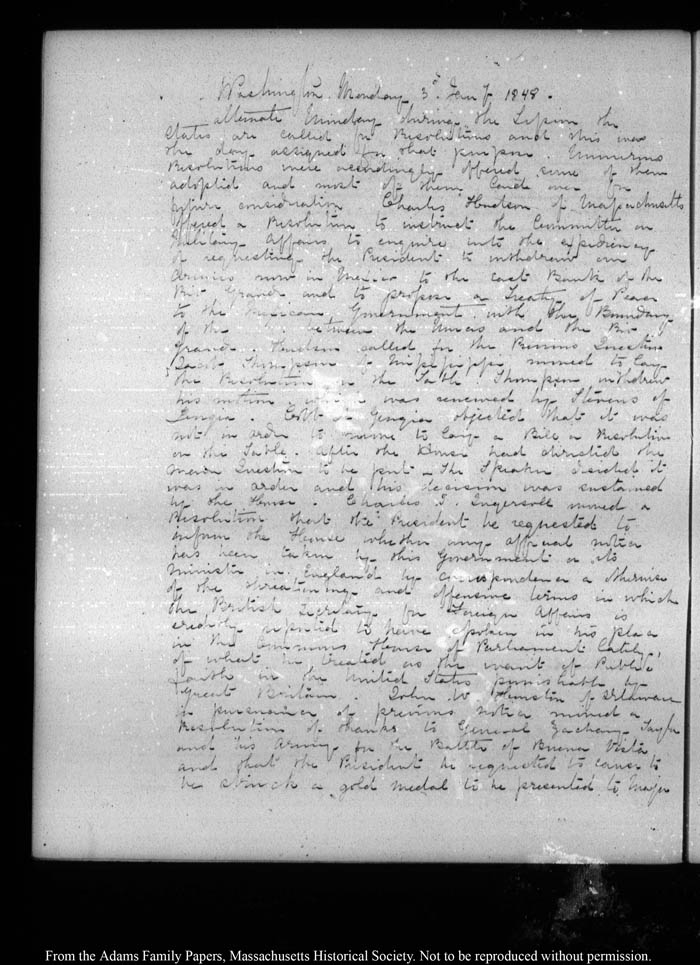 Washington Monday 3d. Jany 1848.
alternate Monday during the Session the
States are called for Resolutions and this was
the day assigned for that purpose. Numerous
Resolutions were accordingly offered some of them
adopted and most of them laid over for
future consideration Charles Hudson of Massachusetts
offered a Resolution to instruct the Committee on
Military Affairs to enquire into the expediency
of requesting the President to withdraw our
Armies now in Mexico to the east Bank of the
Rio Grand and to propose a Treaty of Peace
to the Mexican Government with the Boundary
of the between the Nueces and the Rio
Grand. Hudson called for the Previous Question
Jacob Thompson of Mississippi moved to lay
the Resolution on the Table Thompson withdrew
his motion which was renewed by Stevens of
Georgia Cobb of Georgia objected that it was
not in order to move to lay a Bill or Resolution
on the Table. After the House had directed the
main Question to be put. The Speaker decided it
was in order and his decision was sustained
by the House. Charles J. Ingersoll moved a
Resolution that the President be requested to
inform the House whether any official notice
has been taken by this Government or its
minister in England by correspondence or otherwise
of the threatening and offensive terms in which
the British Secretary for Foreign Affairs is
credibly reported to have spoken in his place
in the Commons House of Parliament lately,
of what he treated as the want of Public
Faith in the United States punishable by
Great Britain. John W Houston of Delaware
in pursuance of previous notice moved a
Resolution of thanks to General Zachary Taylor
and his Army for the Battle of Buena Vista
and that the President be requested to cause to
be struck a gold medal to be presented to Major
From the Adams Family Papers, Massachusetts Historical Society. Not to be reproduced without permission.